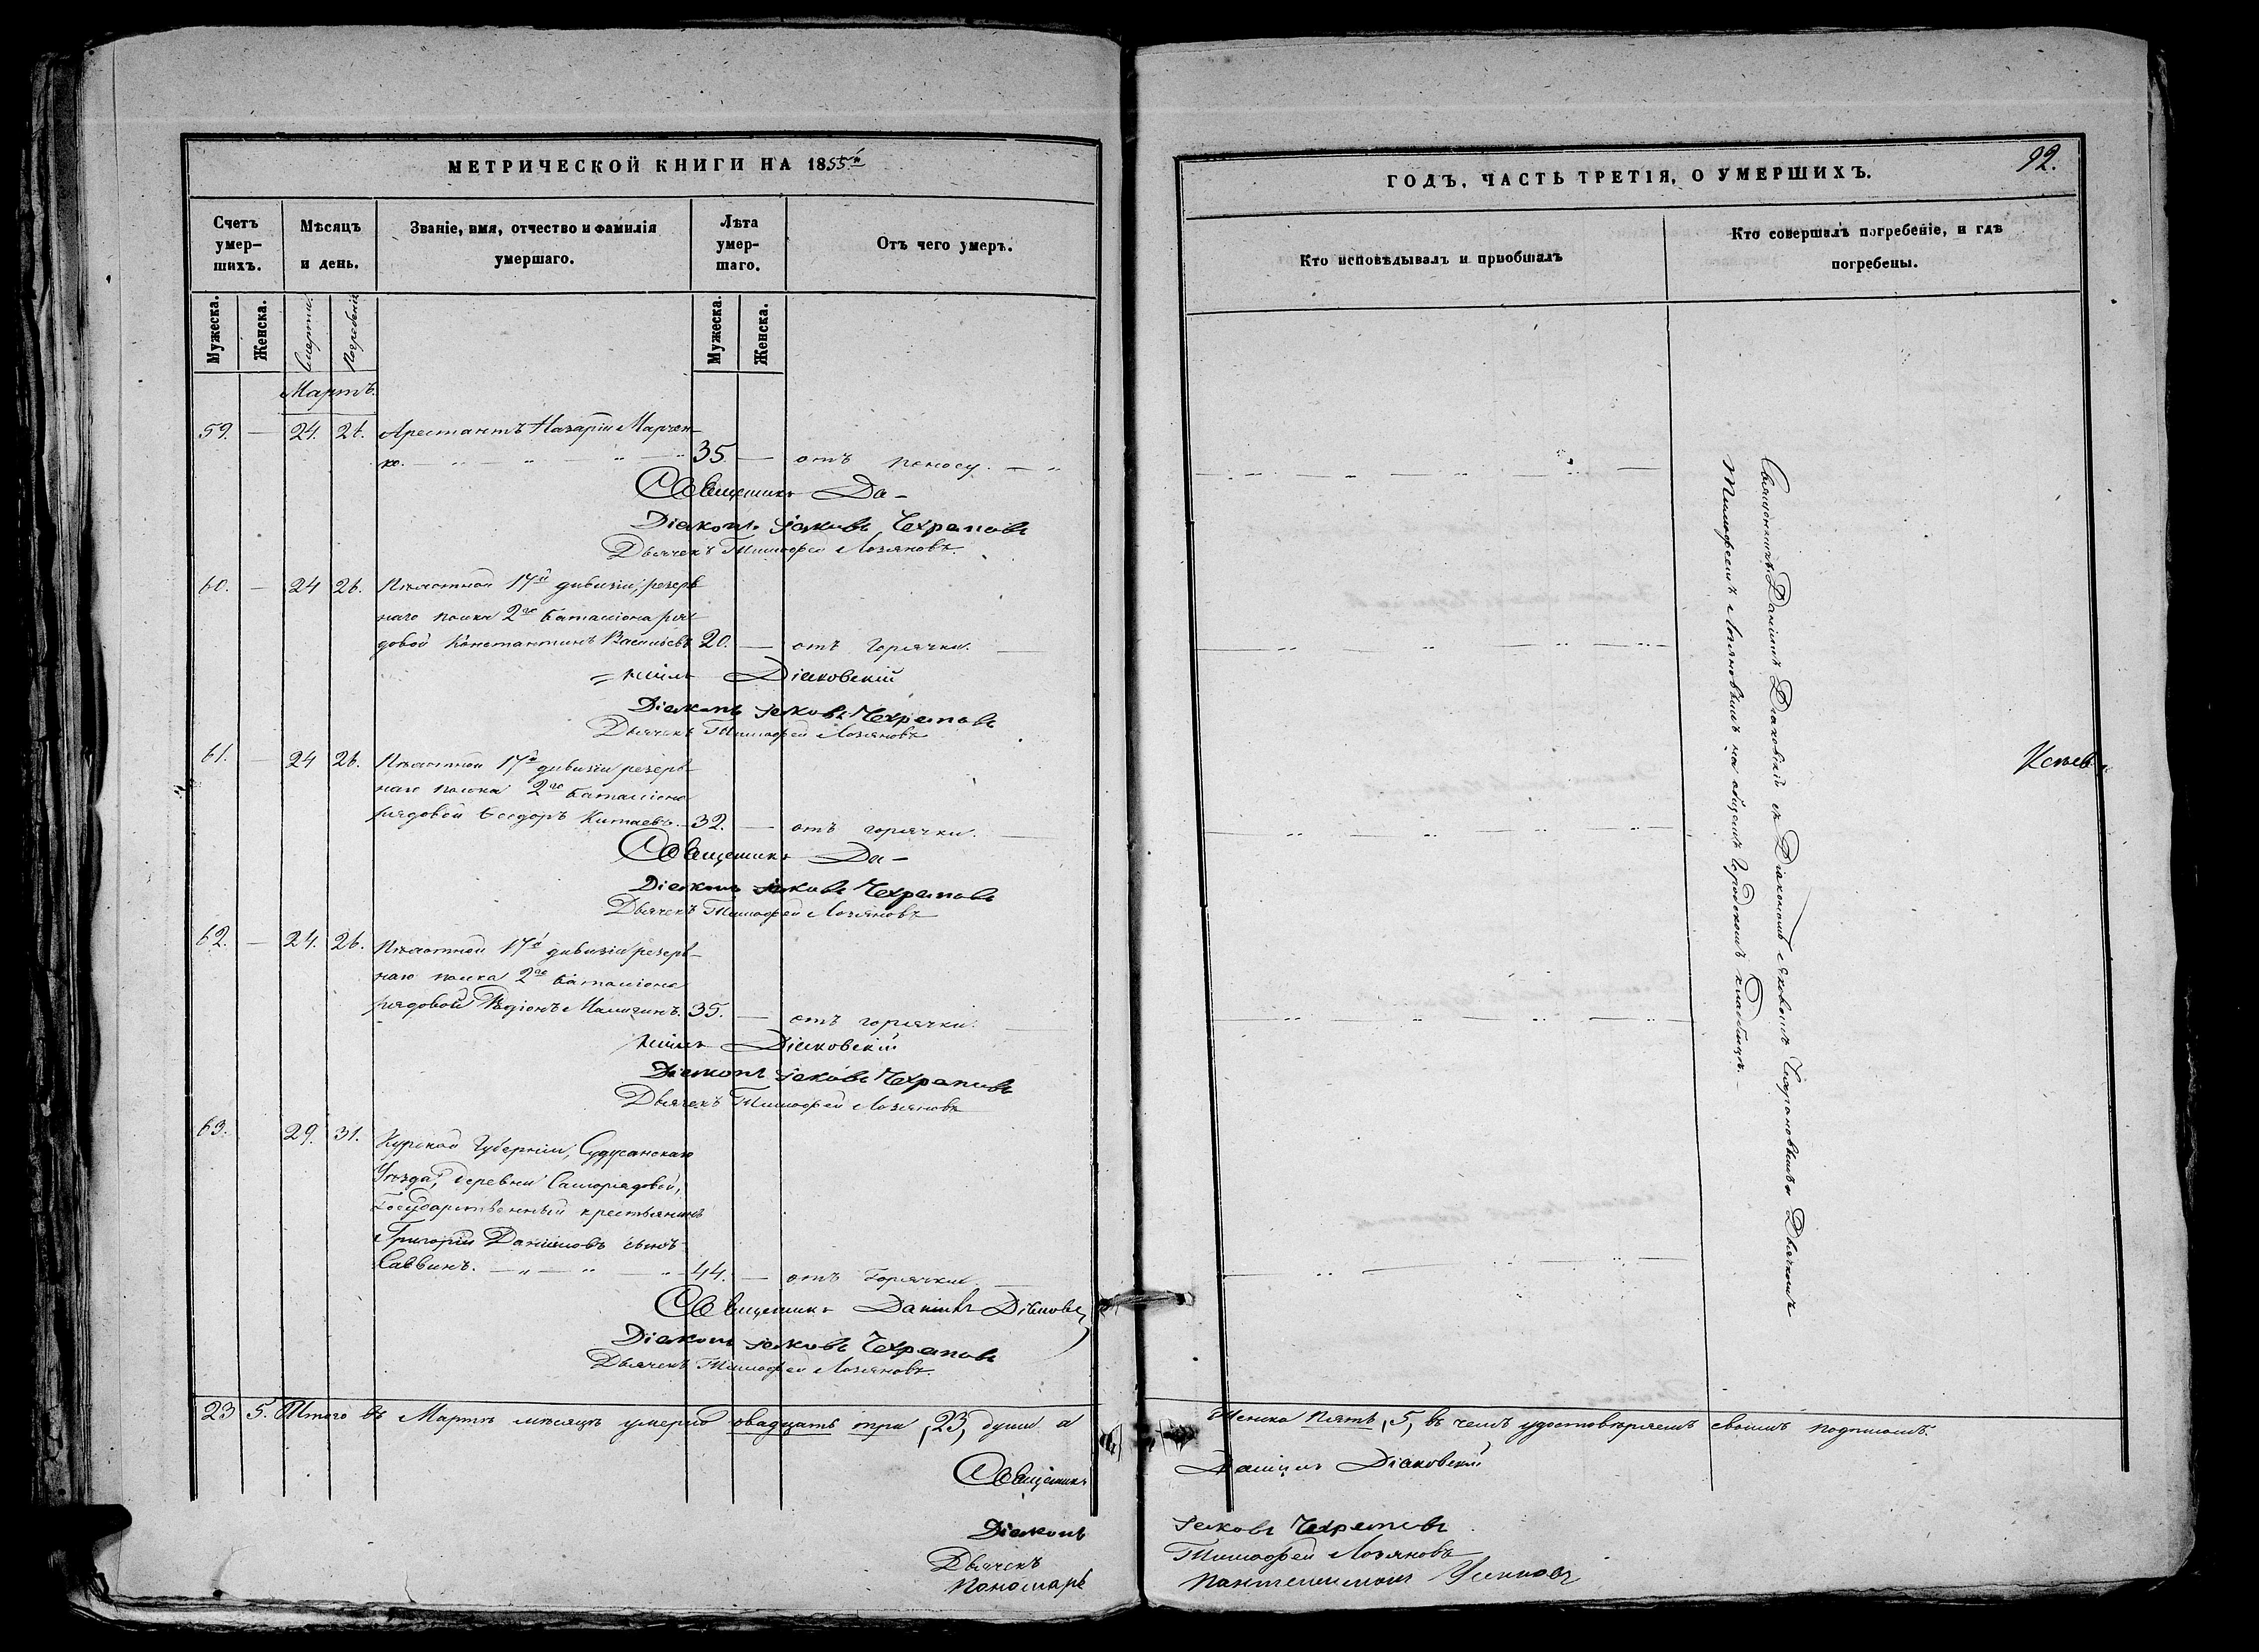 МЕТРИЧЕСКОЙ КНИГИ НА 1855й
Счетъ умер-шихъ.
Мѣсяцъ и день.
Званіе, имя, отчество и фамилія умершаго.
Лѣта умер-шаго.
Отъ чего умеръ.
Мужеска.
Женска.
Смерти.
Погребенія
Мужеска.
Женска.
Мартъ.
59. — 24. 26. Арестантъ Назарій Марчен-
ко. 35. — отъ поносу.
Священникъ Да-
Діаконъ Іаковъ Чехрановъ
Дьячекъ Тимофей Лозяновъ.
60. — 24 26. Пѣхотной 17й дивизіи, резерв
наго полка 2го баталіона ря
довой Константинъ Васильевъ 20. — отъ горячки.
ніилъ Діаковскій
Діаконъ Іаковъ Чехрановъ
Дьячекъ Тимофей Лозяновъ
61. — 24 26. Пѣхотной 17й дивизіи резерв-
наго полка 2го баталіона
рядовой Ѳеодоръ Китаевъ. 32. — отъ горячки.
Священникъ Да-
Діаконъ Іаковъ Чехрановъ
Дьячекъ Тимофей Лозяновъ
62. — 24. 26. Пѣхотной 17й дивизіи резерв-
наго полка 2го баталіона
рядовой Родіонъ Малигинъ. 35. — отъ горячки.
ніилъ Діаковскій
Діаконъ Іаковъ Чехрановъ
Дьячекъ Тимофей Лозяновъ
63. 29. 31. Курской Губерніи, Суджанскаго
Уѣзда, деревни Саморядовой,
Государственный крестьянинъ
Григорій Даниловъ сынъ
Саввинъ. 44. — отъ горячки.
Священникъ Даніилъ Діаковск
Діаконъ Іаковъ Чехрановъ
Дьячекъ Тимофей Лозяновъ.
23 5. Итого въ Мартѣ мѣсяцѣ умерло двадцать три, 23, души а
Священникъ
Діаконъ
Дьячекъ
Пономарь
92.
ГОДЪ, ЧАСТЬ ТРЕТІЯ, О УМЕРШИХЪ.
Кто исповѣдывалъ и пріобщалъ
Кто совершалъ погребеніе, и гдѣ погребены.
Священникъ Даніилъ Діаковскій съ Діакономъ Іаковомъ Чехрановымъ и Дьячкомъ
Тимофеемъ Лозяновымъ на общемъ городскомъ кладбищѣ.
женска пять, 5, въ чемъ удостовѣряемъ своимъ подписомъ.
Даніилъ Діаковскій
Іаковъ Чехрановъ
Тимофей Лозяновъ
Пантелеимонъ